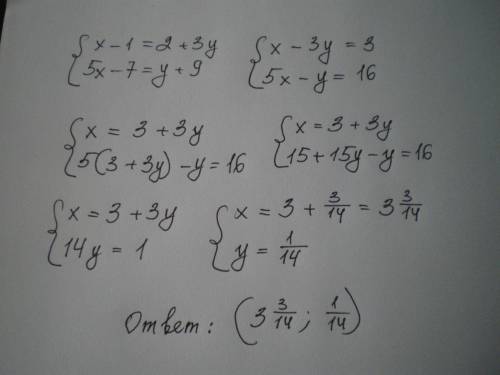 { x - 1 = 2 + 3y
{ 5x - 7 = y + 9
{ x - 3y = 3
{ 5x - y = 16
{ x = 3 + 3y
{ 5(3 + 3y) - y = 16
{ x = 3 + 3y
{ 15 + 15y - y = 16
{ x = 3 + 3y
{ 14y = 1
{ x = 3 + 3/14 = 3 3/14
{ y = 1/14
Ответ: (3 3/14 ; 1/14)